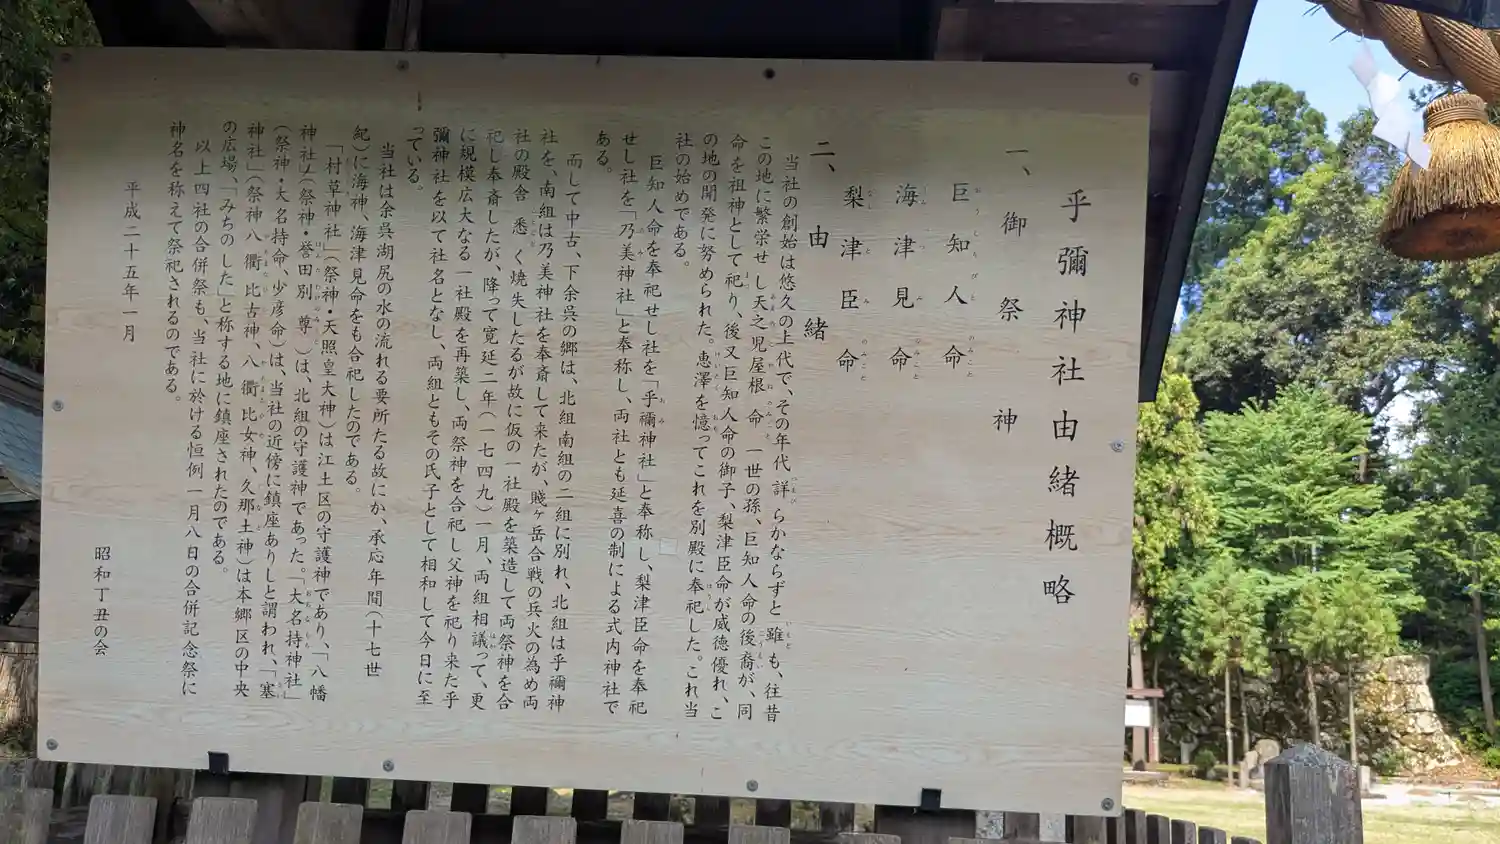 乎彌神社由緒概略
一、御祭神
巨知人命
海津見命
梨津臣命
二、由緒
当社の創始は悠久の上代で、その年代詳らかならずと雖も、往昔
この地に繁栄せし天之児屋根命一世の孫、巨知人命の後裔が、同
命を祖神として祀り、後又巨知人命の御子、梨津臣命が威徳優れ、こ
の地の開発に努められた。恵澤を憶ってこれを別殿に奉祀した。これ当
社の始めである。
巨知人命を奉祀せし社を「乎禰神社」と奉称し、梨津臣命を奉祀
せし社を「乃美神社」と奉称し、両社とも延喜の制による式内神社で
ある。
而して中古、下余呉の郷は、北組南組の二組に別れ、北組は乎禰神
社を、南組は乃美神社を奉斎して来たが、賤ヶ岳合戦の兵火の為め両
社の殿舎悉く焼失したるが故に仮の一社殿を築造して両祭神を合
祀し奉斎したが、降って寛延二年（一七四九）一月、両組相議って、更
に規模広大なる一社殿を再築し、両祭神を合祀し父神を祀り来た乎
彌神社を以て社名となし、両組ともその氏子として相和して今日に至
っている。
当社は余呉湖尻の水の流れる要所たる故にか、承応年間（十七世
紀）に海神、海津見命をも合祀したのである。
「村草神社」（祭神・天照皇大神）は江土区の守護神であり、「八幡
神社」（祭神・誉田別尊）は、北組の守護神であった。「大名持神社」
（祭神・大名持命、少彦命）は、当社の近傍に鎮座ありしと謂われ、「塞
神社」（祭神八衢比古神、八衢比女神、久那土神）は本郷区の中央
の広場、「みちのした」と称する地に鎮座されたのである。
以上四社の合併祭も、当社に於ける恒例一月八日の合併記念祭に
神名を称えて祭祀されるのである。
平成二十五年一月
昭和丁丑の会